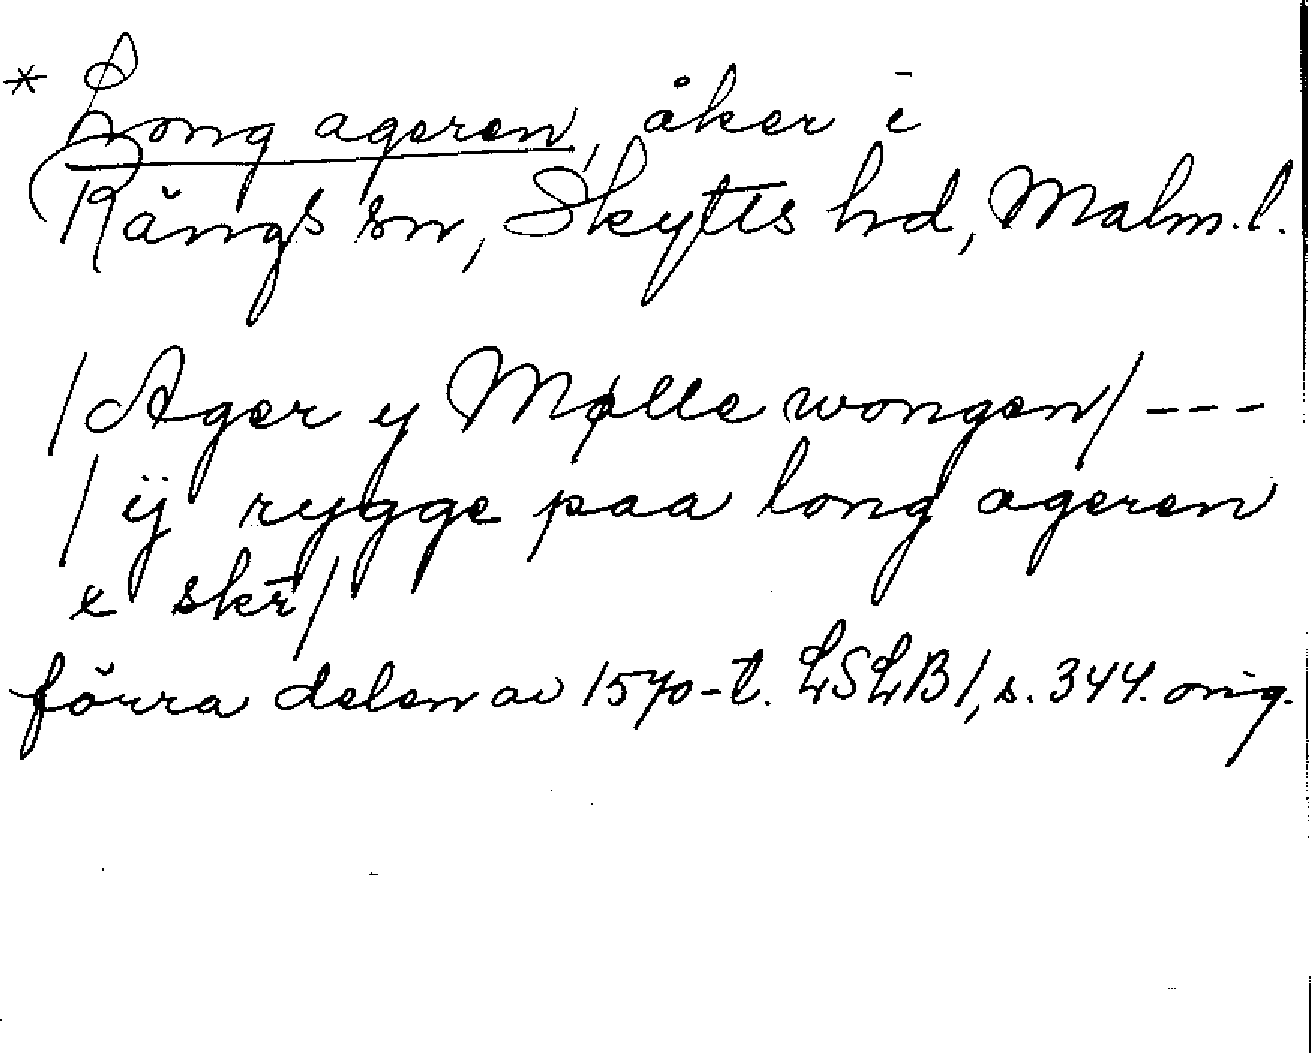 * Long ageren, åker i
Rängs sn, Skytts hd, Malm. l.
/Ager y Mølle wongen/ ---
/ ij rygge paa long ageren
x skr̄/
förra delen av 1570-t. LSLB 1, s. 344. orig.